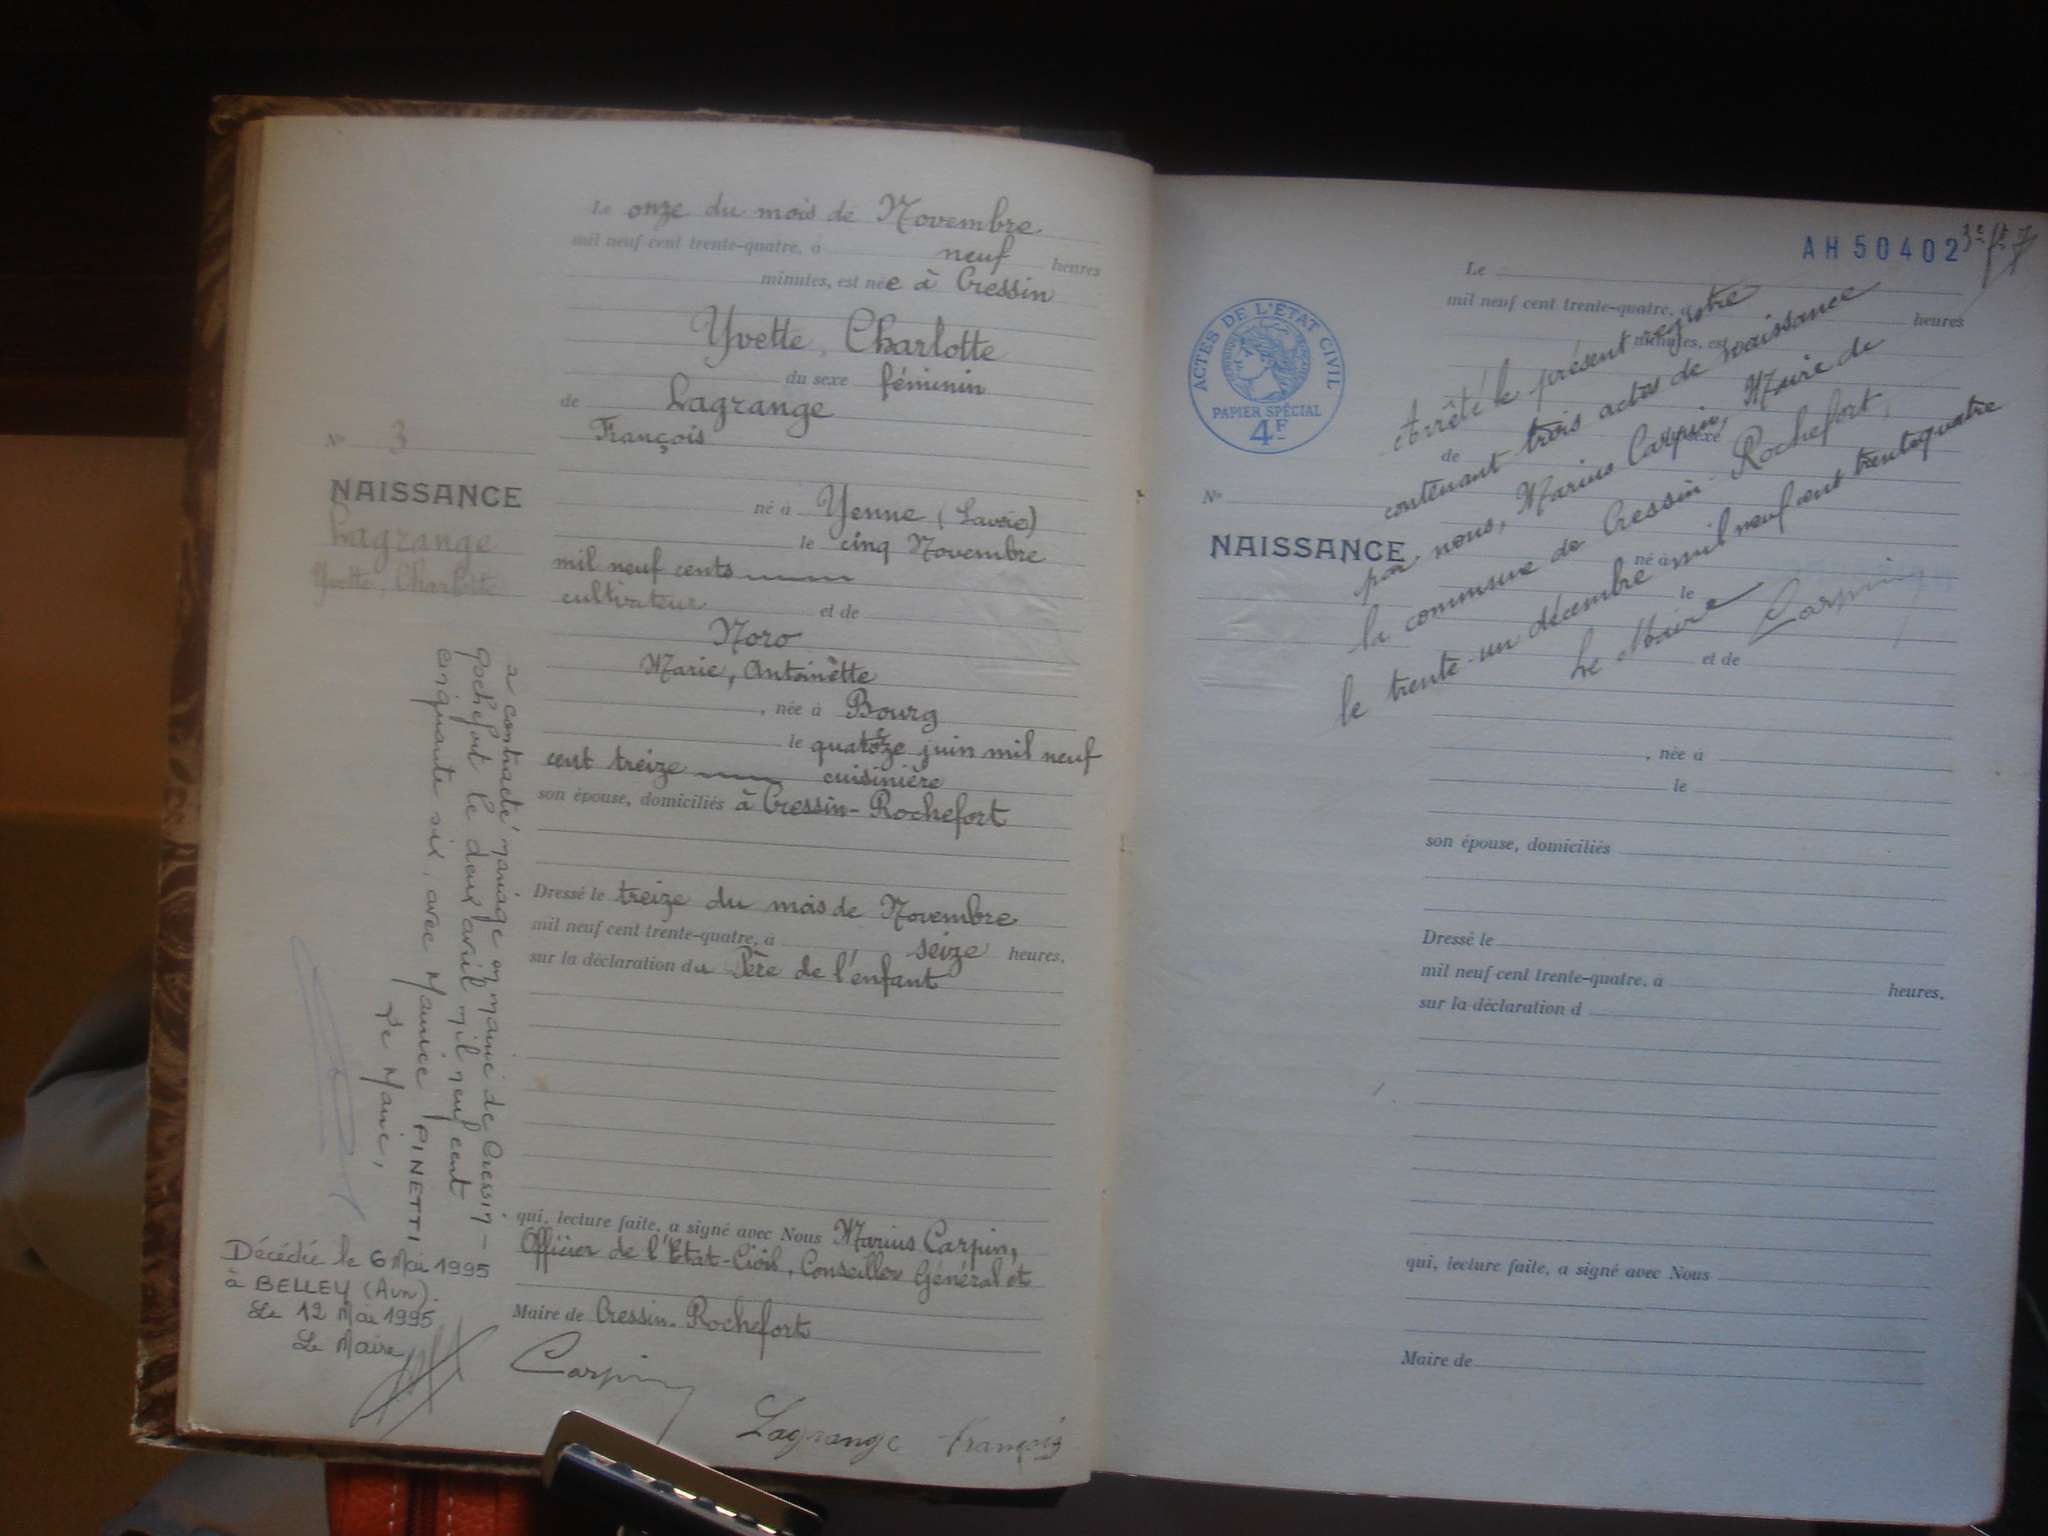 Le onze du mois de Novembre
mil neuf cent trente-quatre, à neuf heures
minutes, est née à Cressin
Yvette, Charlotte
du sexe féminin
de Lagrange
François
né à Yenne (Savoie)
le cinq Novembre
mil neuf cents
cultivateur et de
Noro
Marie, Antoinette
, née à Bourg
le quatorze juin mil neuf
cent treize cuisinière
son épouse, domiciliés à Cressin-Rochefort
Dressé le treize du mois de Novembre
mil neuf cent trente-quatre, à seize heures,
sur la déclaration du Père de l'enfant
qui, lecture faite, a signé avec Nous Marius Carpin,
Officier de l'Etat-Civil, Conseiller Général et
Maire de Cressin-Rochefort
Carpin
Lagrange François
N° 3
NAISSANCE
Lagrange
Yvette, Charlotte
a contracté mariage en mairie de Cressin-
Rochefort le deux avril mil neuf cent
cinquante six, avec Maurice PINETTI
Le Maire,
Décédée le 6 Mai 1995
à BELLEY (Ain).
Le 12 Mai 1995
Le Maire
AH 50402
ACTES DE L'ÉTAT CIVIL
PAPIER SPÉCIAL
4F
N°
NAISSANCE
Le
mil neuf cent trente-quatre, à
heures
minutes, est
du sexe
de
né à
le
et de
, née à
le
son épouse, domiciliés
Dressé le
mil neuf cent trente-quatre, à heures,
sur la déclaration d
qui, lecture faite, a signé avec Nous
Maire de
Arrêté le présent registre
contenant trois actes de naissance
par nous, Marius Carpin, Maire de
la commune de Cressin-Rochefort,
le trente-un décembre mil neuf cent trente quatre
Le Maire
Carpin